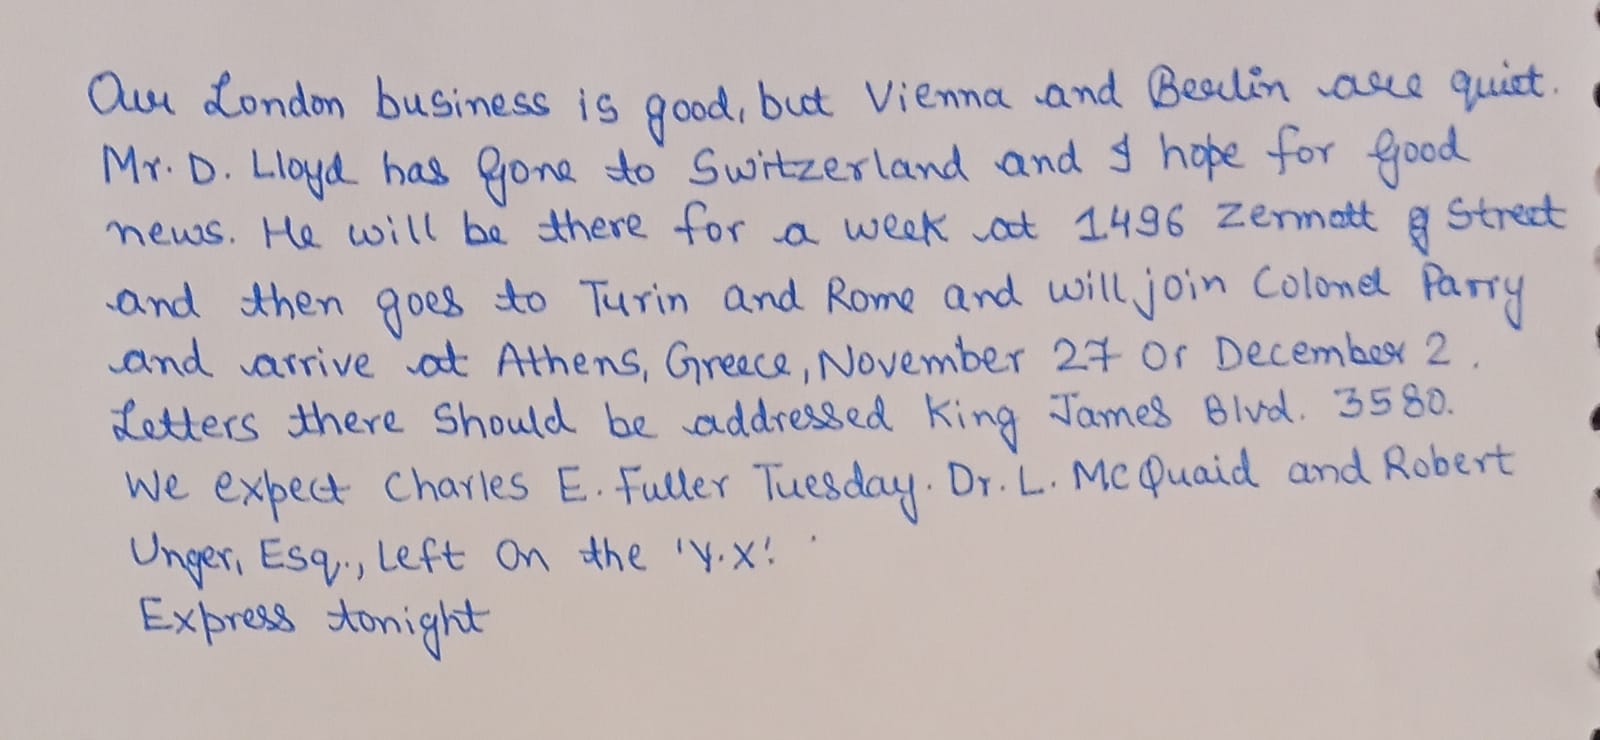 Our London business is good, but Vienna and Berlin are quiet.
Mr. D. Lloyd has gone to Switzerland and I hope for good
news. He will be there for a week at 1496 Zermatt Street
and then goes to Turin and Rome and will join Colonel Parry
and arrive at Athens, Greece, November 27 or December 2.
Letters there Should be addressed King James Blvd. 3580.
We expect Charles E. Fuller Tuesday. Dr. L. McQuaid and Robert
Unger, Esq., Left On the 'Y.X.'
Express tonight